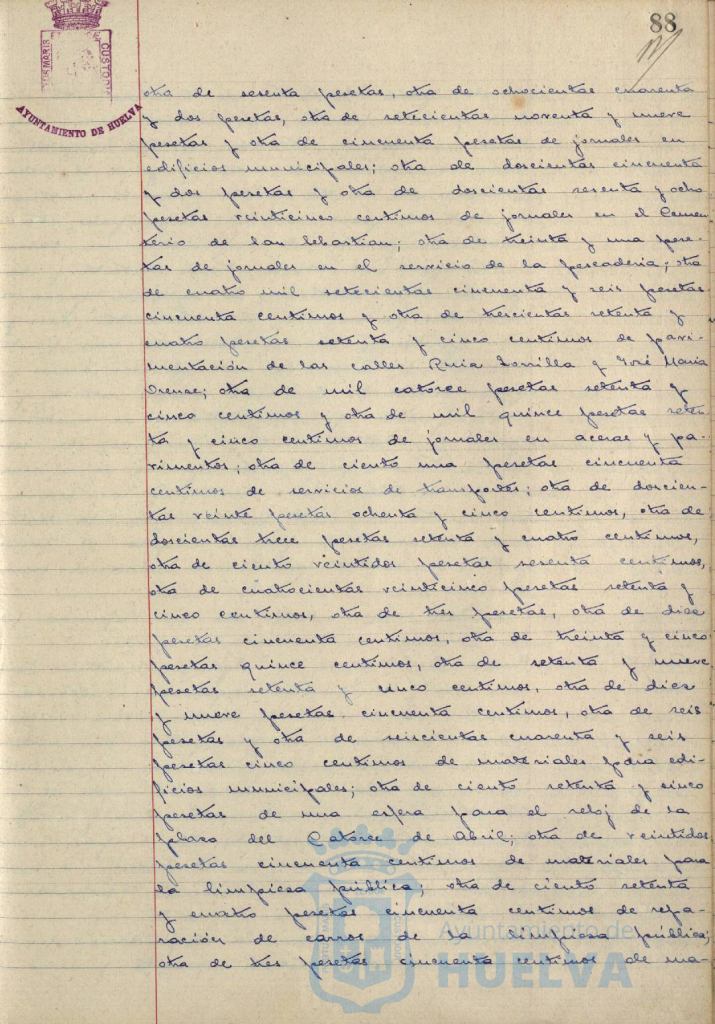 88
AYUNTAMIENTO DE HUELVA
otra de sesenta pesetas, otra de ochocientas cuarenta
y dos pesetas, otra de setecientas noventa y nueve
pesetas y otra de cincuenta pesetas de jornales en
edificios municipales; otra de doscientas cincuenta
y dos pesetas y otra de doscientas sesenta y ocho
pesetas veinticinco centimos de jornales en el Cemen-
terio de San Sebastian; otra de treinta y una pese-
tas de jornales en el servicio de la pescaderia; otra
de cuatro mil setecientas cincuenta y seis pesetas
cincuenta centimos y otra de trescientas setenta y
cuatro pesetas setenta y cinco centimos de pavi-
mentación de las calles Ruiz Zorrilla y José Maria
Orense; otra de mil catorce pesetas setenta y
cinco centimos y otra de mil quince pesetas seten-
ta y cinco centimos de jornales en aceras y pa-
vimentos; otra de ciento una pesetas cincuenta
centimos de servicios de transportes; otra de doscien-
tas veinte pesetas ochenta y cinco centimos, otra de
doscientas trece pesetas setenta y cuatro centimos,
otra de ciento veintidos pesetas sesenta centimos,
otra de cuatrocientas veinticinco pesetas setenta y
cinco centimos, otra de tres pesetas, otra de diez
pesetas cincuenta centimos, otra de treinta y cinco
pesetas quince centimos, otra de setenta y nueve
pesetas setenta y cinco centimos, otra de diez
y nueve pesetas cincuenta centimos, otra de seis
pesetas y otra de seiscientas cuarenta y seis
pesetas cinco centimos de materiales para edi-
ficios municipales; otra de ciento setenta y cinco
pesetas de una esfera para el reloj de la
plaza del Catorce de Abril; otra de veintidos
pesetas cincuenta centimos de materiales para
la limpieza pública; otra de ciento setenta
y cuatro pesetas cincuenta centimos de repa-
ración de carros de la limpieza pública;
otra de tres pesetas cincuenta centimos de ma-
Ayuntamiento de
HUELVA